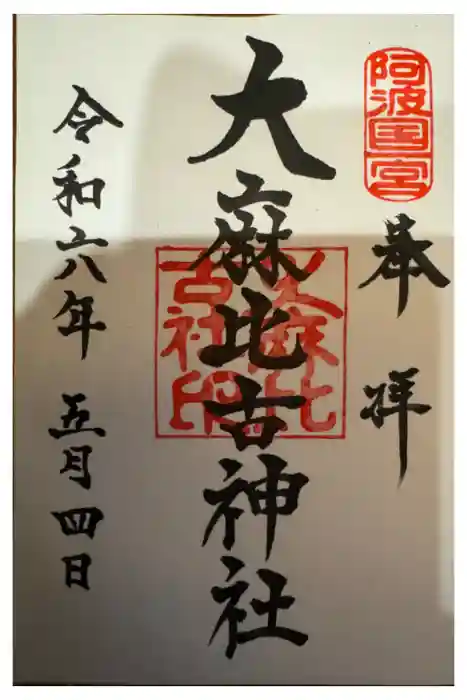 阿波国一宮
奉拝
大麻比古神社
大麻比古社印
令和六年 五月四日